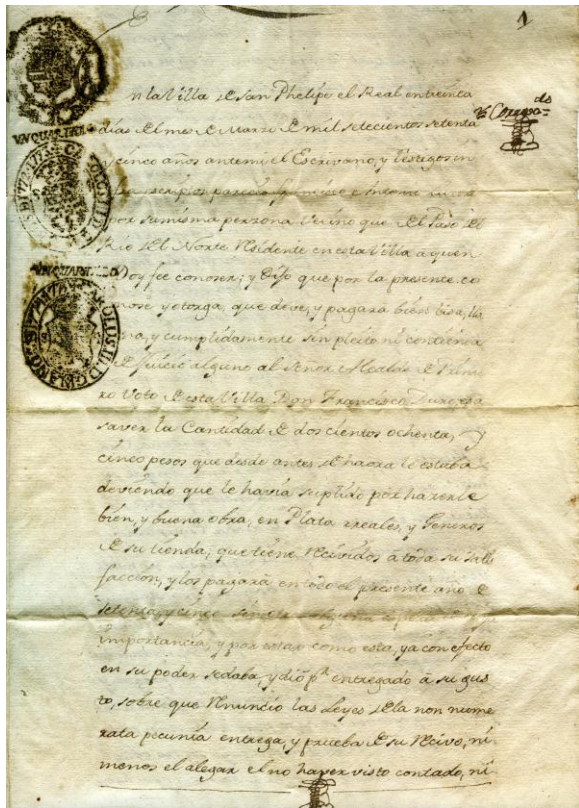 1
n la Villa de San Phelipe el Real en treinta
dias del mes de Marzo de mil setecientos setenta
y cinco años ante mi el Escrivano, y testigos
parecio
por su misma perzona vecino que del Paso del
Rio del Norte residente en esta Villa a quien
Doy fee conoser; y Dijo que por la presente co
nose y otorga, que deve, y pagará bien, lisa, lla
na, y cumplidamente sin pleito ni contienda
de Juicio alguno al Señor Alcalde de Prime
ro Voto de esta Villa Don Francisco
saver la Cantidad de dos cientos ochenta, y
cinco pesos que desde antes de haora le estaba
deviendo que le havia suplido por hazerle
bien, y buena obra, en Plata, reales, y Generos
de su tienda, que tiene recividos a toda su satis
facción, y los pagará en todo el presente año de
setenta, y cinco
importancia, y por estar como esta, ya con efecto
en su poder sedaba, y dió pr entregado á su gus
to, sobre que renuncio las Leyes dela non nume
rata pecunia entrega y prueba de su recivo, ni
menos el alegar el no haver visto contado, ni
VN QUARTILLO
VN QUARTILLO
CAROLUS III D G